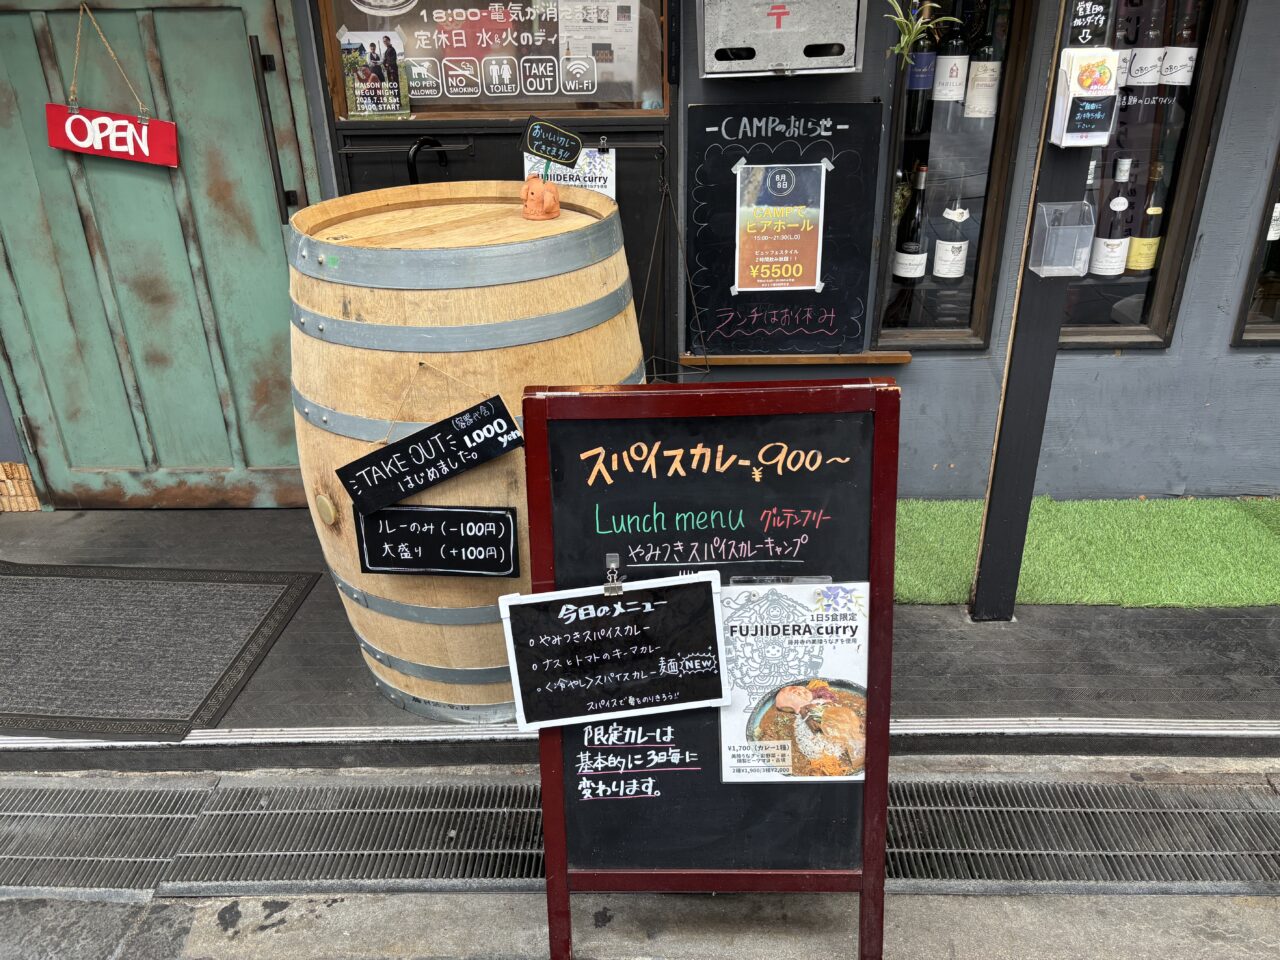 18:00-電気が消えるまで
定休日 水&火のディナー
MAISON INCO
MEGU NIGHT
2025.7.19 Sat
19:00 START
NO PETS ALLOWED
NO SMOKING
TOILET
TAKE OUT
Wi-Fi
OPEN
おいしいカレー
できてます!!
FUJIIDERA curry
〒
ーCAMPのおしらせー
8月
8日
CAMPで
ビアホール
15:00〜21:30(L.O)
ビュッフェスタイル
2時間飲み放題!!
¥5500
ランチはお休み
営業日の
カレンダーです
TAKE OUT
はじめました。
(容器代含)
1,000
yen
ルーのみ (−100円)
大盛り (+100円)
スパイスカレー¥900〜
Lunch menu グルテンフリー
やみつきスパイスカレーキャンプ
今日のメニュー
○やみつきスパイスカレー
○ナスとトマトのキーマカレー
○〈冷やし〉スパイスカレー麺 NEW
スパイスで夏をのりきろう!!
1日5食限定
FUJIIDERA curry
¥1,700 (カレー1種)
2種¥1,900/3種¥2,000
限定カレーは
基本的に3日毎に
変わります。